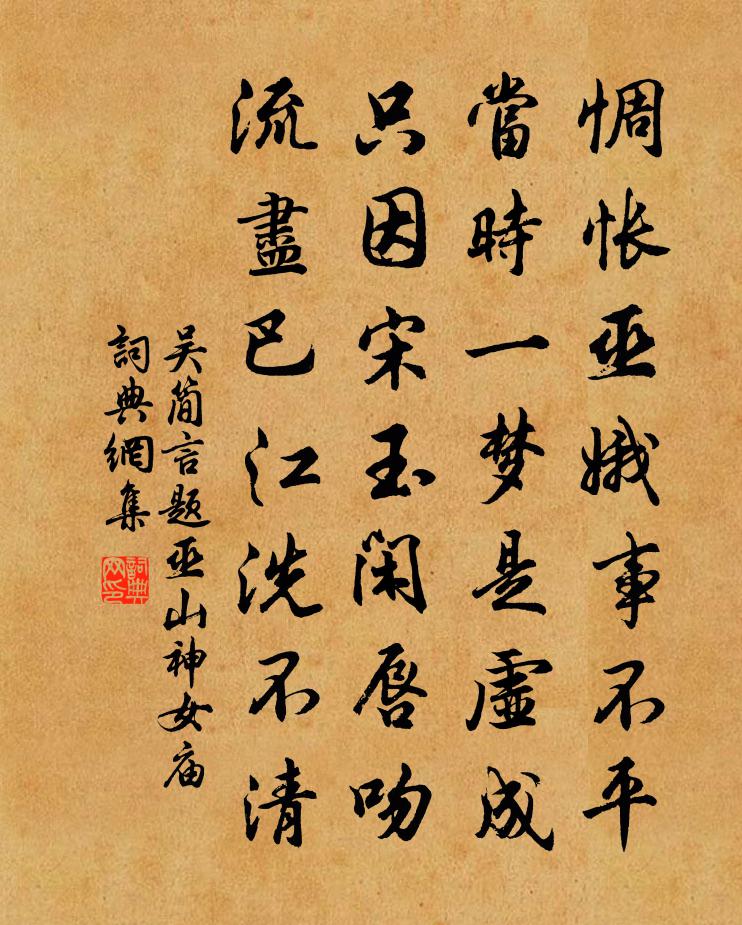 惆悵巫娥事不平
當時一梦是虛成
只因宋玉閑唇吻
流盡巴江洗不清
吴简言题巫山神女庙
詞典網集
詞典网印